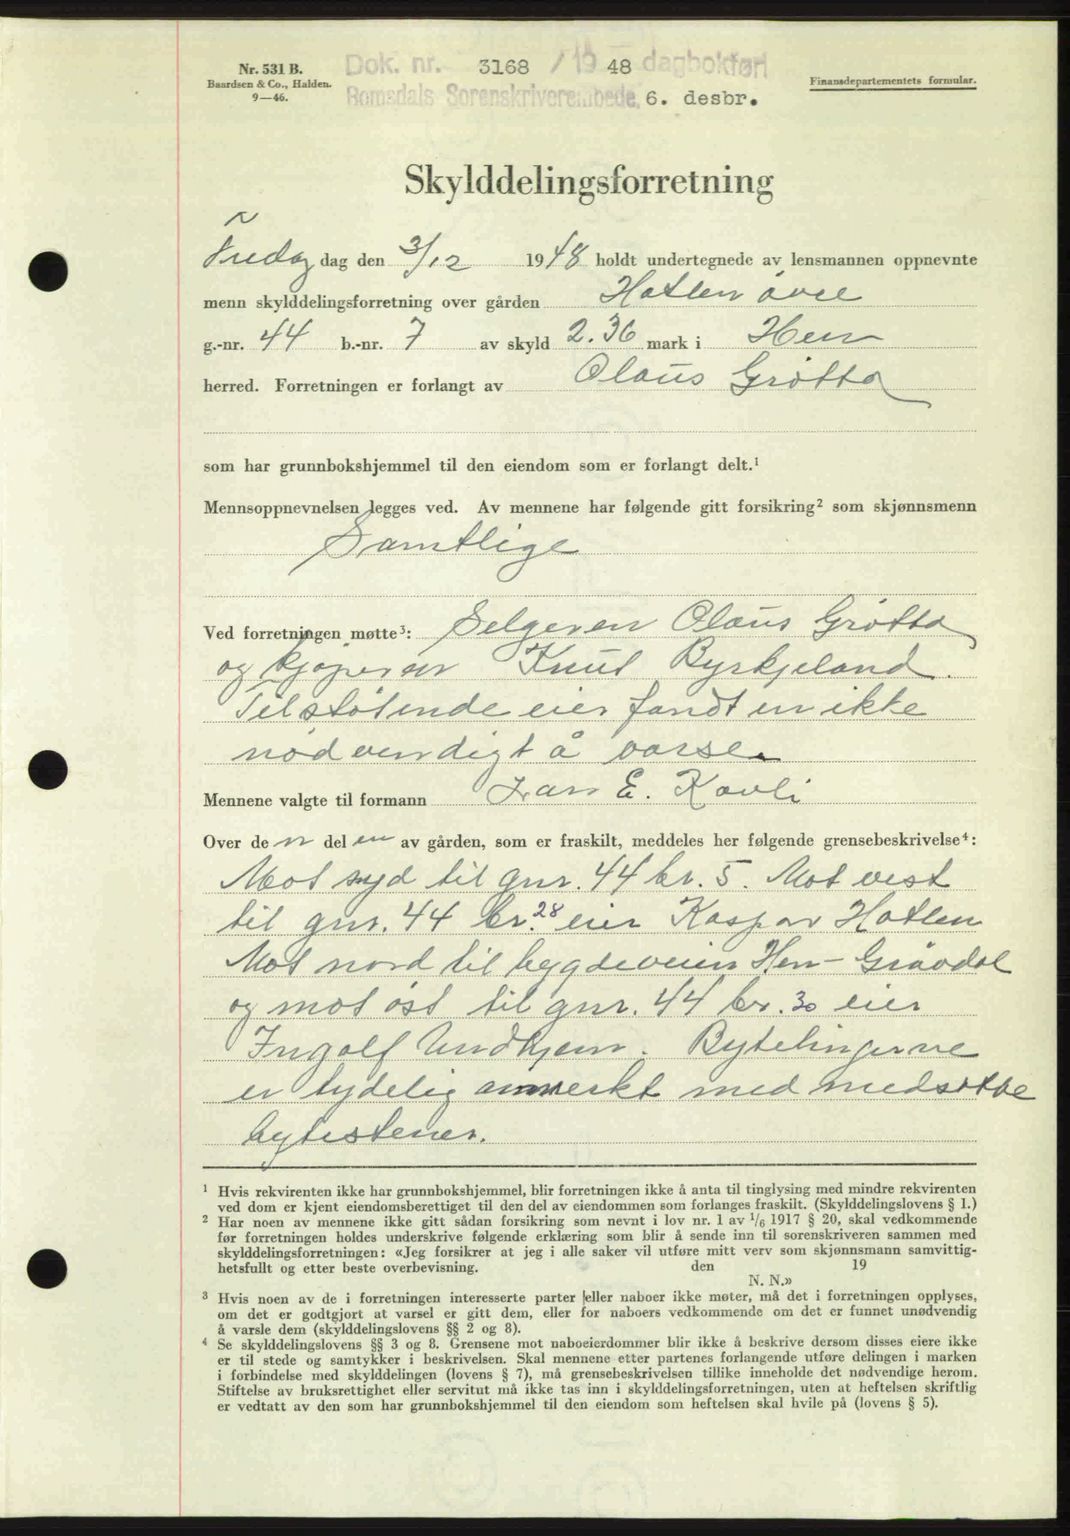 Nr. 531 B.
Baardsen & Co., Halden.
9—46.
Dok. nr. 3168 / 19 48 dagbokført
Romsdals Sorenskriverembede, 6. desbr.
Finansdepartementets formular.
Skylddelingsforretning
Fredag dag den 3/12 1948 holdt undertegnede av lensmannen oppnevnte
menn skylddelingsforretning over gården Hatlen øvre
g.-nr. 44 b.-nr. 7 av skyld 2.36 mark i Hen
herred. Forretningen er forlangt av Olaus Grøtta
som har grunnbokshjemmel til den eiendom som er forlangt delt.¹
Mennsoppnevnelsen legges ved. Av mennene har følgende gitt forsikring² som skjønnsmenn
Samtlige
Ved forretningen møtte³: Selgeren Olaus Grøtta
og kjøperen Knut Byrkjeland.
Tilstøtende eier fandt en ikke
nødvendigt å varsle
Mennene valgte til formann Lars E. Kavli
Over den del en av gården, som er fraskilt, meddeles her følgende grensebeskrivelse⁴:
Mot syd til gnr. 44 br. 5. Mot vest
til gnr. 44 br. 28 eier Kaspar Hatlen
Mot nord til bygdeveien Hen- Grøvdal
og mot øst til gnr. 44 br. 30 eier
Ingolf Undhjem. Bytelinjerne
er tydelig anmerkt med medsatte
bytestener.
¹ Hvis rekvirenten ikke har grunnbokshjemmel, blir forretningen ikke å anta til tinglysing med mindre rekvirenten
ved dom er kjent eiendomsberettiget til den del av eiendommen som forlanges fraskilt. (Skylddelingslovens § 1.)
² Har noen av mennene ikke gitt sådan forsikring som nevnt i lov nr. 1 av 1/6 1917 § 20, skal vedkommende
før forretningen holdes underskrive følgende erklæring som blir å sende inn til sorenskriveren sammen med
skylddelingsforretningen: «Jeg forsikrer at jeg i alle saker vil utføre mitt verv som skjønnsmann samvittig-
hetsfullt og etter beste overbevisning. den 19
N. N.»
³ Hvis noen av de i forretningen interesserte parter eller naboer ikke møter, må det i forretningen opplyses,
om det er godtgjort at varsel er gitt dem, eller for naboers vedkommende om det er funnet unødvendig
å varsle dem (skylddelingslovens §§ 2 og 8).
⁴ Se skylddelingslovens §§ 3 og 8. Grensene mot naboeierdommer blir ikke å beskrive dersom disses eiere ikke
er til stede og samtykker i beskrivelsen. Skal mennene etter partenes forlangende utføre delingen i marken
i forbindelse med skylddelingen (lovens § 7), må grensebeskrivelsen tillike inneholde det nødvendige herom.
Stiftelse av bruksrettighet eller servitut må ikke tas inn i skylddelingsforretningen, uten at heftelsen skriftlig
er vedtatt av den som har grunnbokshjemmel til den eiendom som heftelsen skal hvile på (lovens § 5).